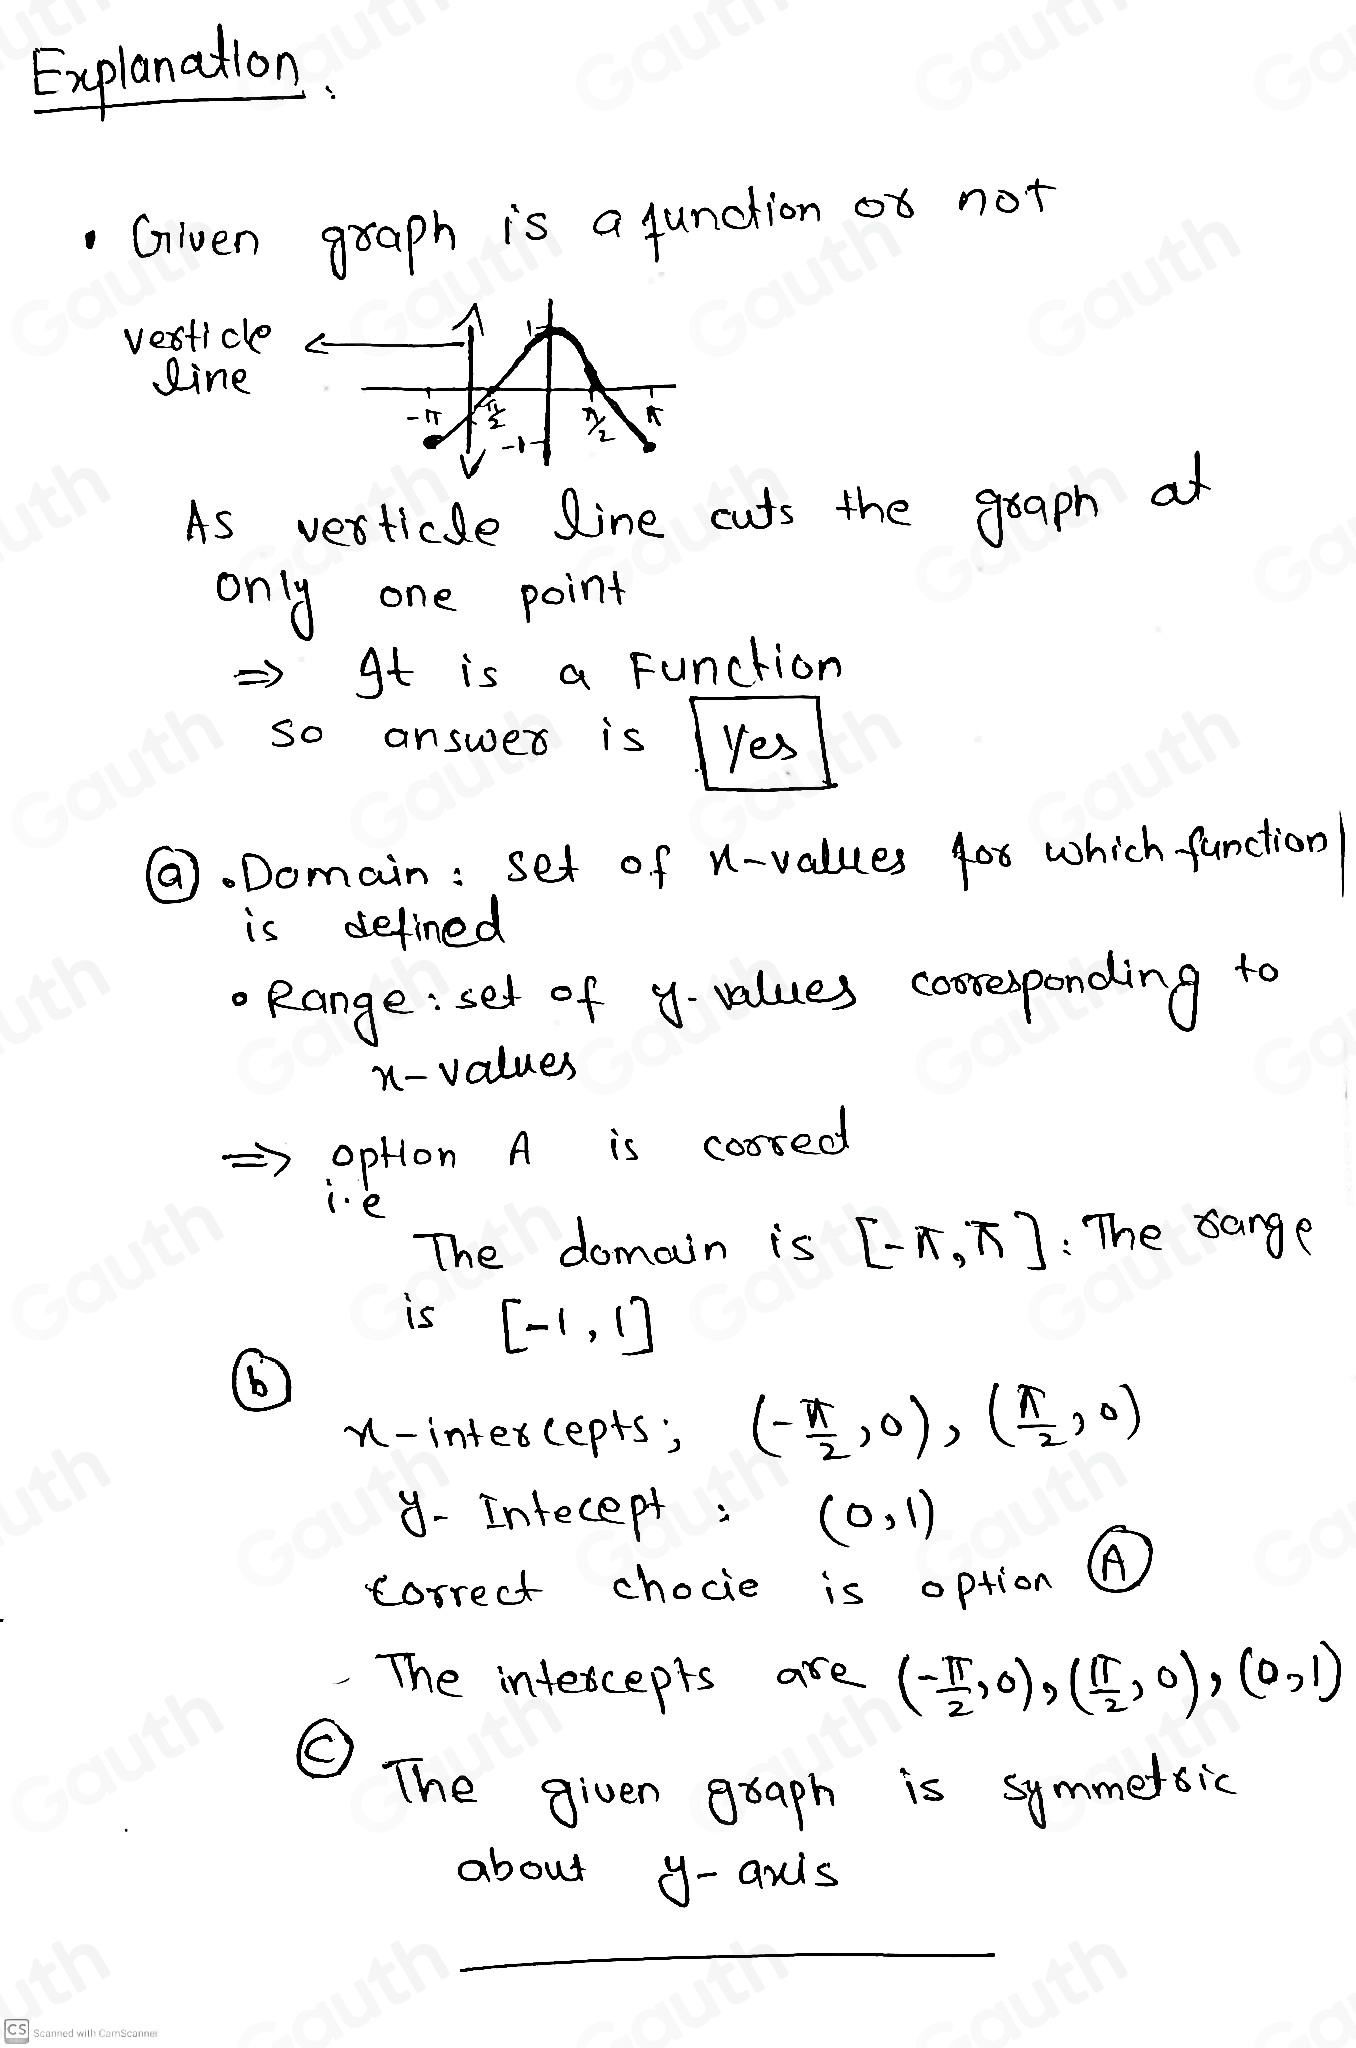 Explanation.
• Given graph is a function or not
verticle
line
1
-π
π/2
-1
π/2
π
As verticle line cuts the graph at
only one point
⇒ It is a Function
so answer is Yes
(a) • Domain : set of x-values for which function
is defined
• Range : set of y-values corresponding to
x-values
⇒ option A is correct
i.e
The domain is [-π, π] : The range
is [-1, 1]
(b)
x-intercepts ; (-π/2, 0), (π/2, 0)
y-Intecept : (0,1)
correct chocie is option (A)
The intercepts are (-π/2, 0), (π/2, 0), (0,1)
(C) The given graph is symmetric
about y-axis
CS Scanned with CamScanner
Gauth